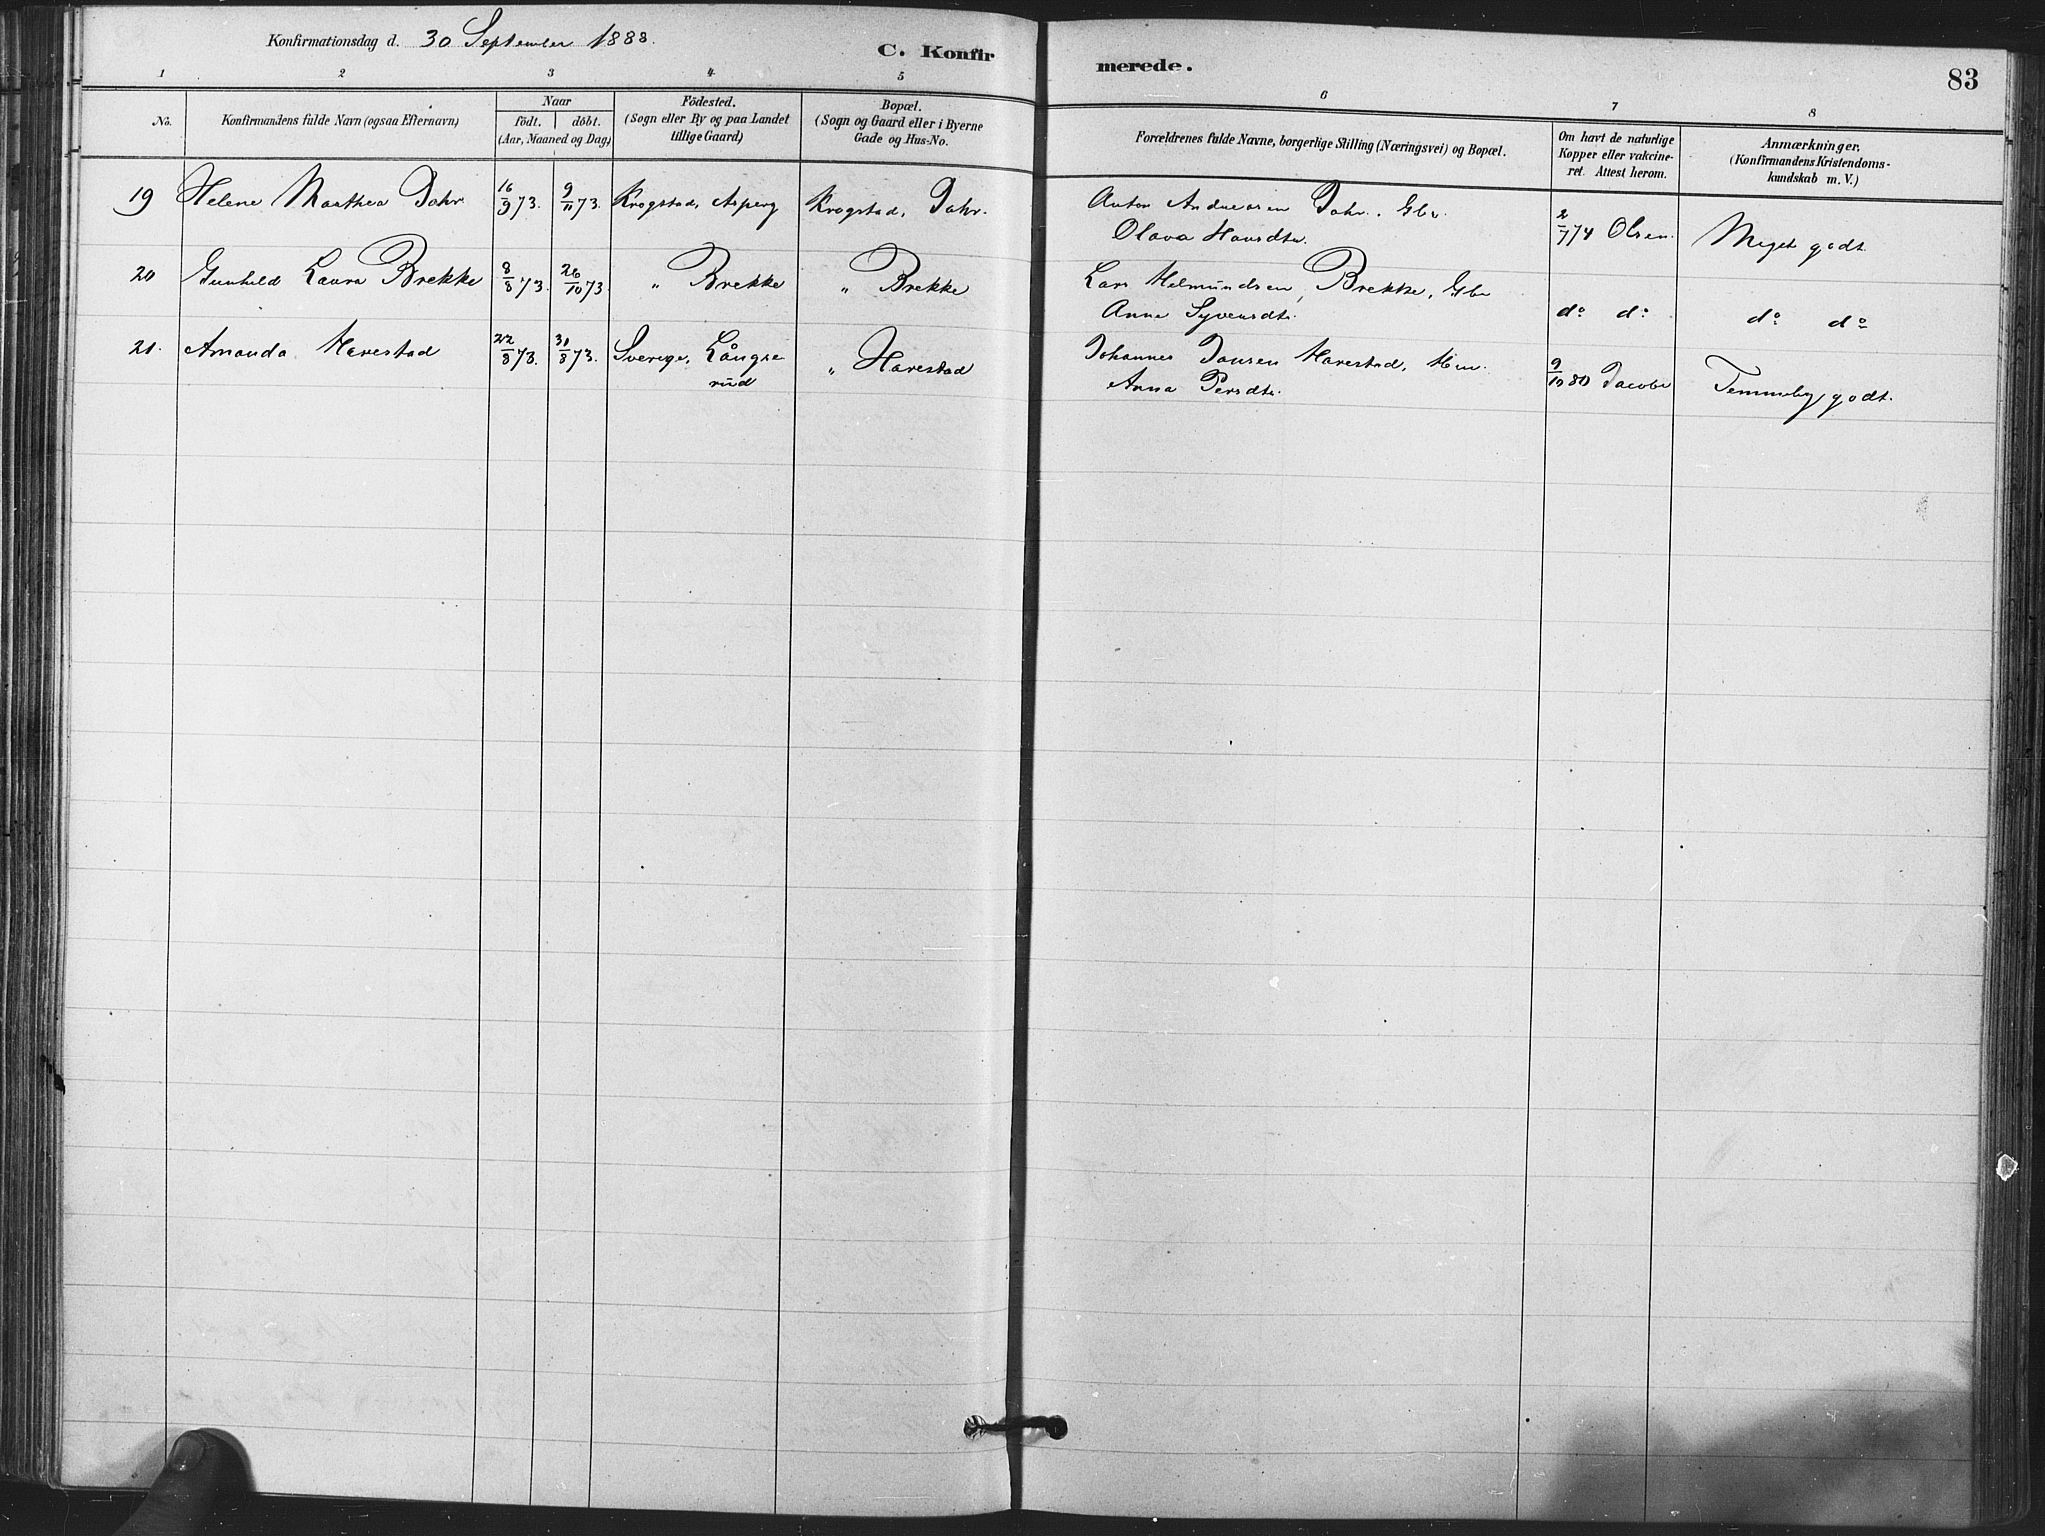 Konfirmationsdag d. 30 September 1888.
C. Konfirmerede.
83
1 2 3 4 5 6 7 8
No.
Konfirmandens fulde Navn (ogsaa Efternavn)
Naar
födt. döbt.
(Aar, Maaned og Dag)
Födested.
(Sogn eller By og paa Landet
tillige Gaard)
Bopæl.
(Sogn og Gaard eller i Byerne
Gade og Hus-No.
Forældrenes fulde Navne, borgerlige Stilling (Næringsvei) og Bopæl.
Om havt de naturlige
Kopper eller vakcine-
ret. Attest herom.
Anmærkninger.
(Konfirmandens Kristendoms-
kundskab m. V.)
19 Helene Maathea Dahr 16/9 73. 9/11 73. Krogstad, Asperg Krogstad, Dahr. Anton Andreasen Dahr. Gbr. 2/7 74 Olsen. Meget godt
Olava Hansdtr.
20 Gunhild Laura Brekke 8/8 73. 26/10 73 " Brekke " Brekke Lars Helmundsen Brekke, Gbr do do do do
Anne Syversdtr.
21. Amanda Harestad 22/8 73. 31/8 73. Sverige, Långse " Harestad Johannes Jansen Harestad, 9/10 80 Jacobi Temmelig godt.
rud Anna Persdtr.